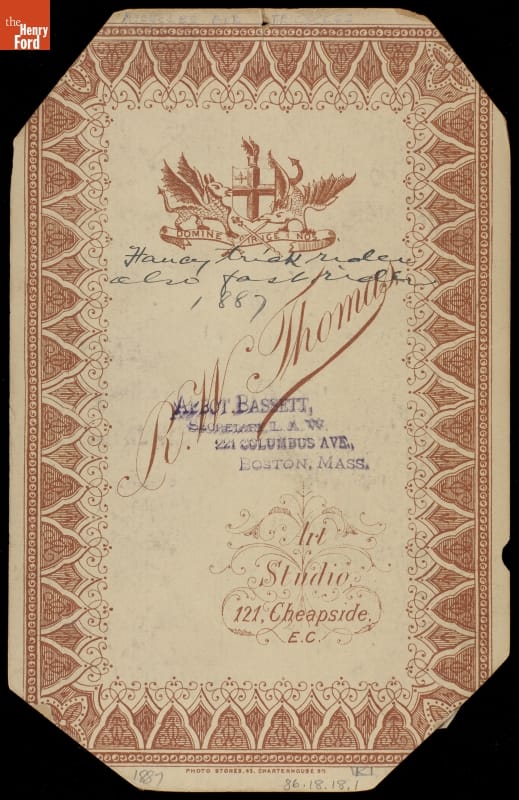 the
Henry
Ford
DOMINE DIRIGE NOS
Fancy trick rider
also fast rider
1887
R.W. Thomas
ABBOT BASSETT,
SECRETARY L. A. W.
221 COLUMBUS AVE.,
BOSTON, MASS.
Art
Studio
121, Cheapside,
E.C.
PHOTO STORES, 43, CHARTERHOUSE SQ
1887
86.18.18.1